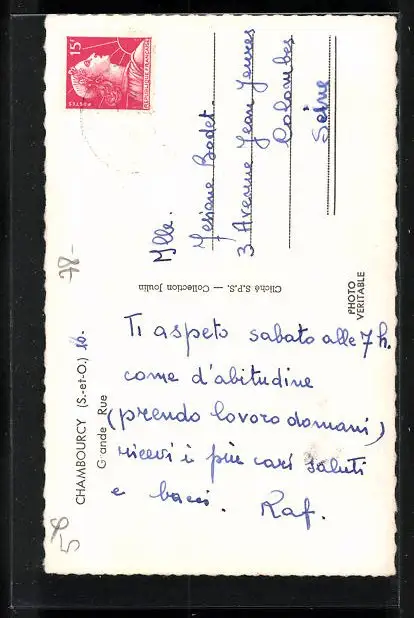 CHAMBOURCY (S.-et-O.) 10.-
Grande Rue
78-
58
Ti aspeto sabato alle 7 h.
come d'abitudine
(prendo lovoro domani)
ricevi i più cari saluti
e bacci. Raf.
Cliché S.P.S. — Collection Joulin
PHOTO
VERITABLE
15F
POSTES
REPUBLIQUE FRANÇAISE
Mlle.
Bodet.
3 Avenue Jean
Colombes
Seine